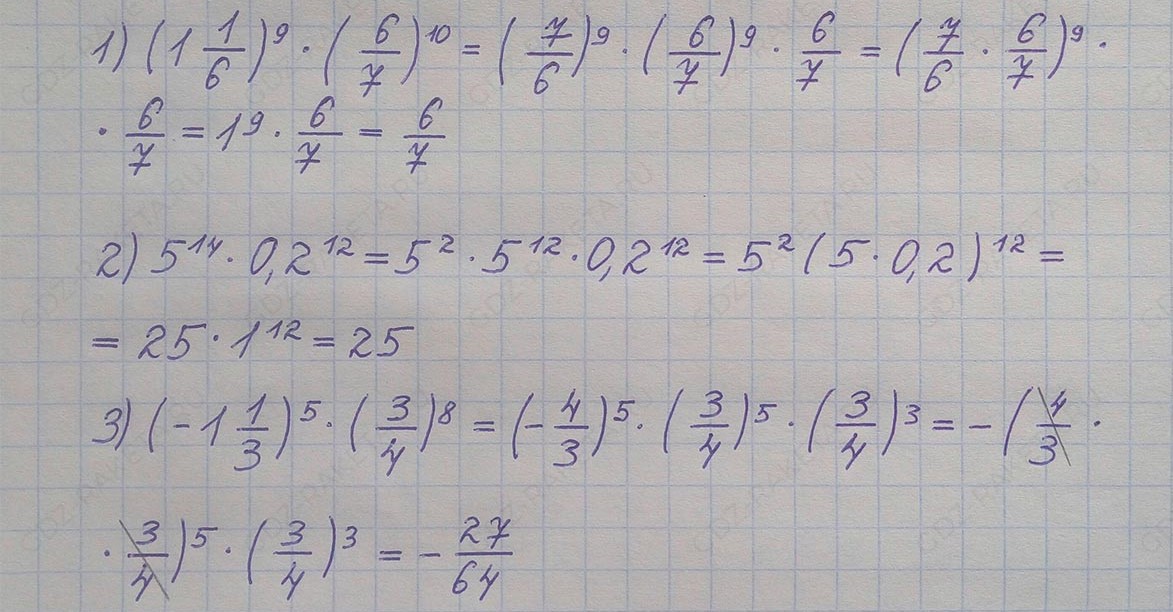 1) (1 1/6)⁹ · (6/7)¹⁰ = (7/6)⁹ · (6/7)⁹ · 6/7 = (7/6 · 6/7)⁹ ·
· 6/7 = 1⁹ · 6/7 = 6/7
2) 5¹⁴ · 0,2¹² = 5² · 5¹² · 0,2¹² = 5² (5 · 0,2)¹² =
= 25 · 1¹² = 25
3) (-1 1/3)⁵ · (3/4)⁸ = (-4/3)⁵ · (3/4)⁵ · (3/4)³ = -(4/3 ·
· 3/4)⁵ · (3/4)³ = -27/64